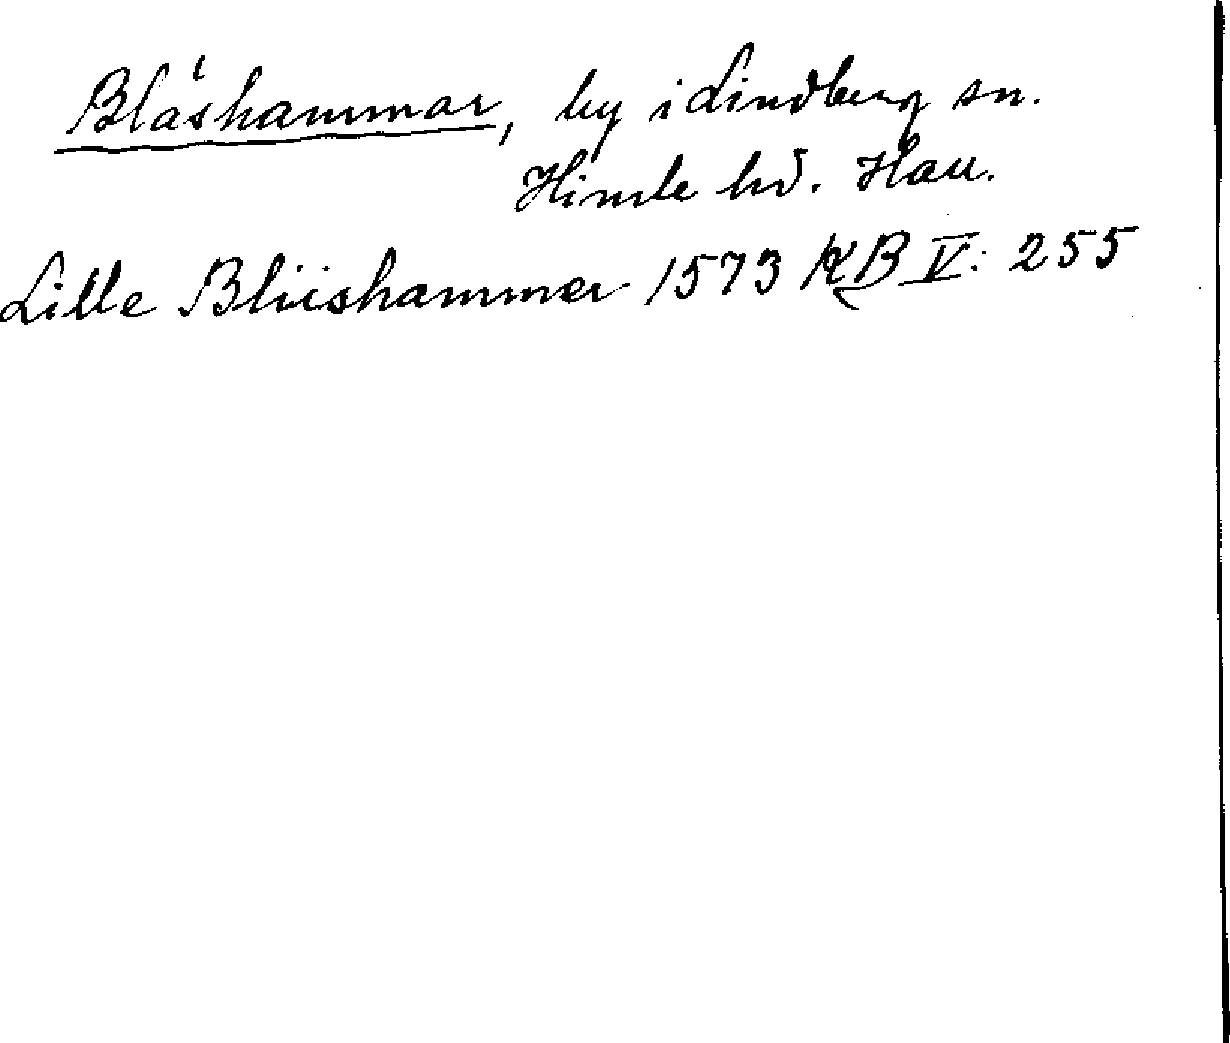 Blåshammar, by i Lindberg sn.
Himle hd. Hall.
Lille Bliishammer 1573 KB V: 255